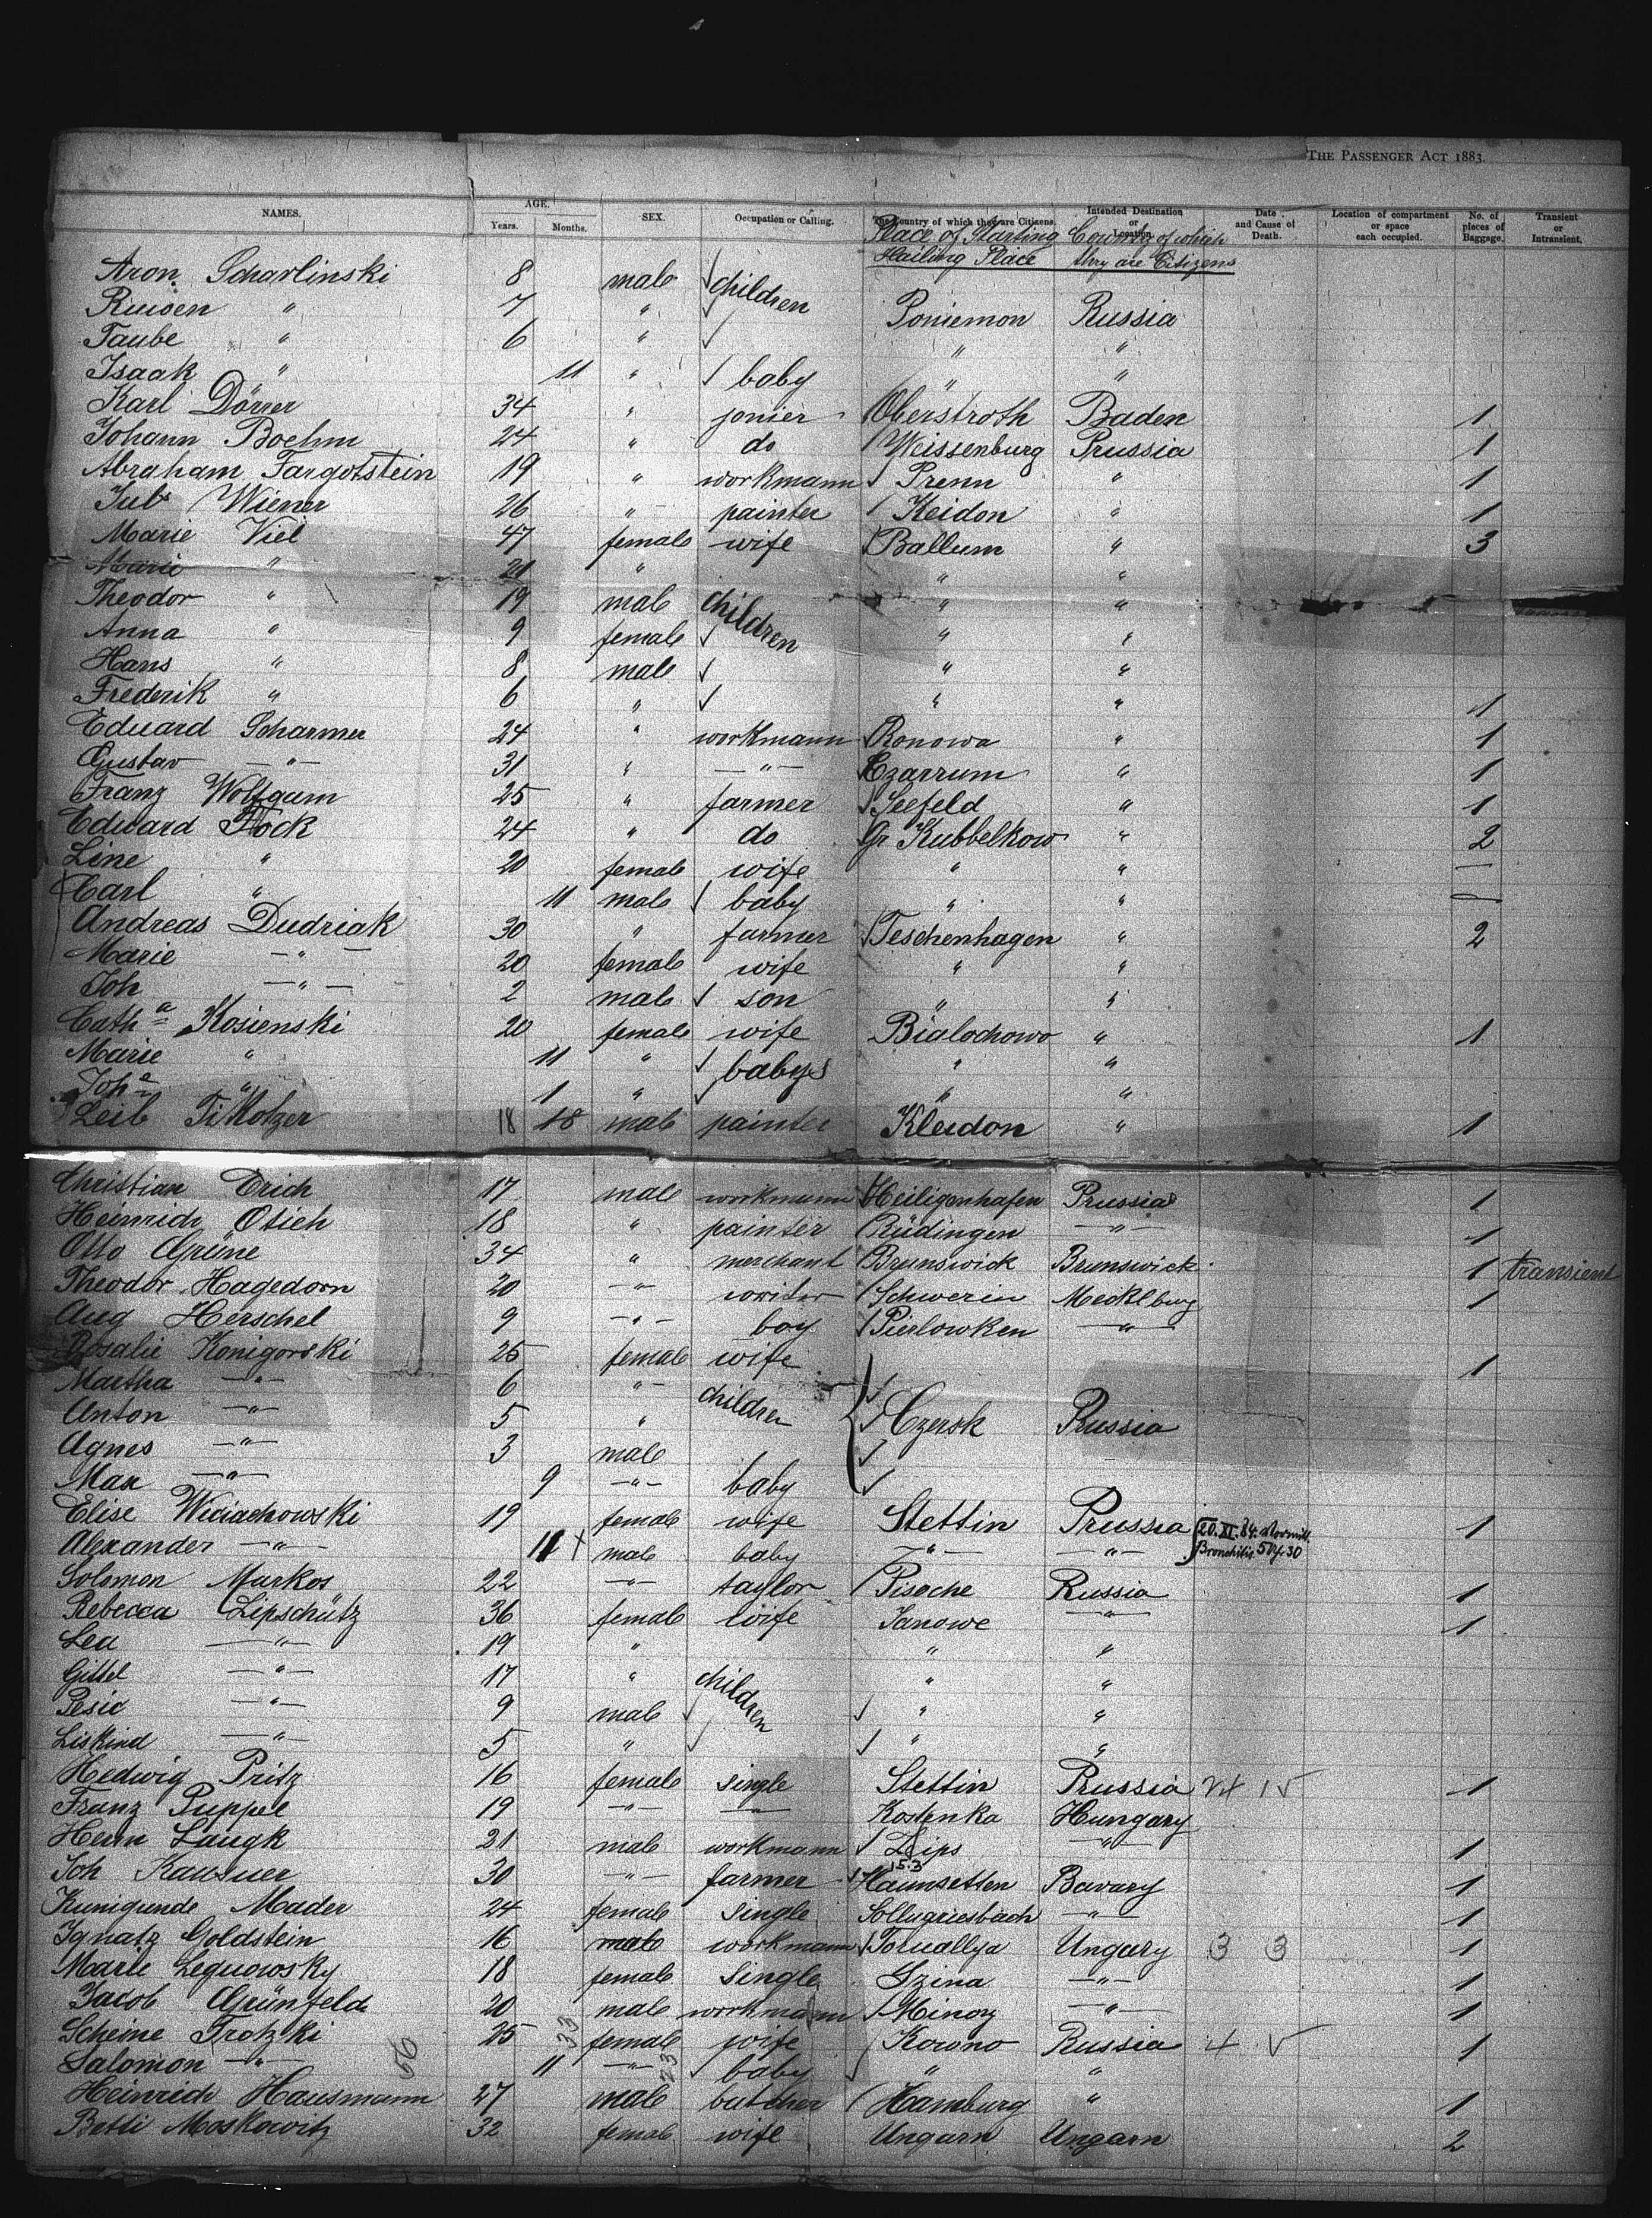 THE PASSENGER ACT 1883.
NAMES. AGE. Years. Months. SEX. Occupation or Calling. The Country of which they are Citizens. Intended Destination or Location. Date and Cause of Death. Location of compartment or space each occupied. No. of pieces of Baggage. Transient or Intransient.
Place of Starting Hailing Place Country of which they are Citizens
Aron Scharlinski 8 male children
Ruwen " 7 " Poniemon Russia
Taube " 6 " " "
Isaak " 11 " baby " "
Karl Dörrer 34 " jonier Oberstroth Baden 1
Johann Boehm 24 " do Weissenburg Prussia 1
Abraham Targotstein 19 " workmann Prenn " 1
Jul Wiener 26 " painter Keidon " 1
Marie Viel 47 female wife Ballum " 3
Marie " 21 " " "
Theodor " 19 male children " "
Anna " 9 female " "
Hans " 8 male " "
Frederik " 6 " " " 1
Eduard Scharmer 24 " workmann Ronowa " 1
Gustav — " — 31 " — " — Czarrum " 1
Franz Wolfgam 25 " farmer Seefeld " 1
Eduard Fock 24 " do Gr Kubbelkow " 2
Line " 20 female wife " " —
Carl " 11 male baby " " —
Andreas Dudriak 30 " farmer Teschenhagen " 2
Marie — " — 20 female wife " "
Joh — " — 2 male son " "
Cath a Kosienski 20 female wife Bialochowo " 1
Marie " 11 " babys " "
Joh a " 1 " " "
Leib Tikotzer 18 18 male painter Kleidon " 1
Christian Erich 17 male workmann Heiligenhafen Prussia 1
Heinrich Otich 18 " painter Büdingen — " — 1
Otto Grüne 34 " merchant Brunswick Brunswick 1 transient
Theodor Hagedorn 20 — " — writer Schwerin Mecklburg 1
Aug Herschel 9 — " — boy Pierlowken — " —
Rosalie Konigorski 25 female wife 1
Martha — " — 6 " children
Anton — " — 5 " Czersk Russia
Agnes — " — 3 male
Max — " — 9 — " — baby
Elise Wiciachowski 19 female wife Stettin Prussia 1
Alexander — " — 11 + male baby — " — — " — 20. XI. 84. Bronchitis
Solomon Markos 22 — " — taylor Pisoche Russia 1
Rebecca Lipschütz 36 female wife Janowe — " — 1
Lea — " — 19 " " "
Gittel — " — 17 " children " "
Pesie — " — 9 male " "
Liskind — " — 5 " " "
Hedwig Pritz 16 female single Stettin Prussia 1
Franz Puppel 19 — " — — Kostenka Hungary
Herm Laugk 21 male workmann Leips — " — 1
Joh Kausner 30 — " — farmer Haunsetten Bavary 1
Kunigunde Mader 24 female single Sollugriesbach — " — 1
Ignatz Goldstein 16 male workmann Toruallya Ungary 3 3 1
Marie Lequowsky 18 female single Gzina — " — 1
Jacob Grünfeld 20 male workmann Minoz — " — 1
Scheine Trotzki 25 female wife Kowno Russia 4 1
Salomon — " — 11 — " — baby " "
Heinrich Hausmann 27 male butcher Hamburg " 1
Betti Moskowitz 32 female wife Ungarn Ungarn 2